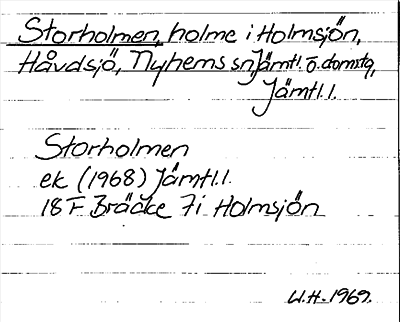 Storholmen, holme i Holmsjön,
Håvdsjö, Nyhems sn, Jämtl. ö. domstg,
Jämtl. l.
Storholmen
ek (1968) Jämtl. l.
18 F Bräcke 7i Holmsjön
W.H. 1969.